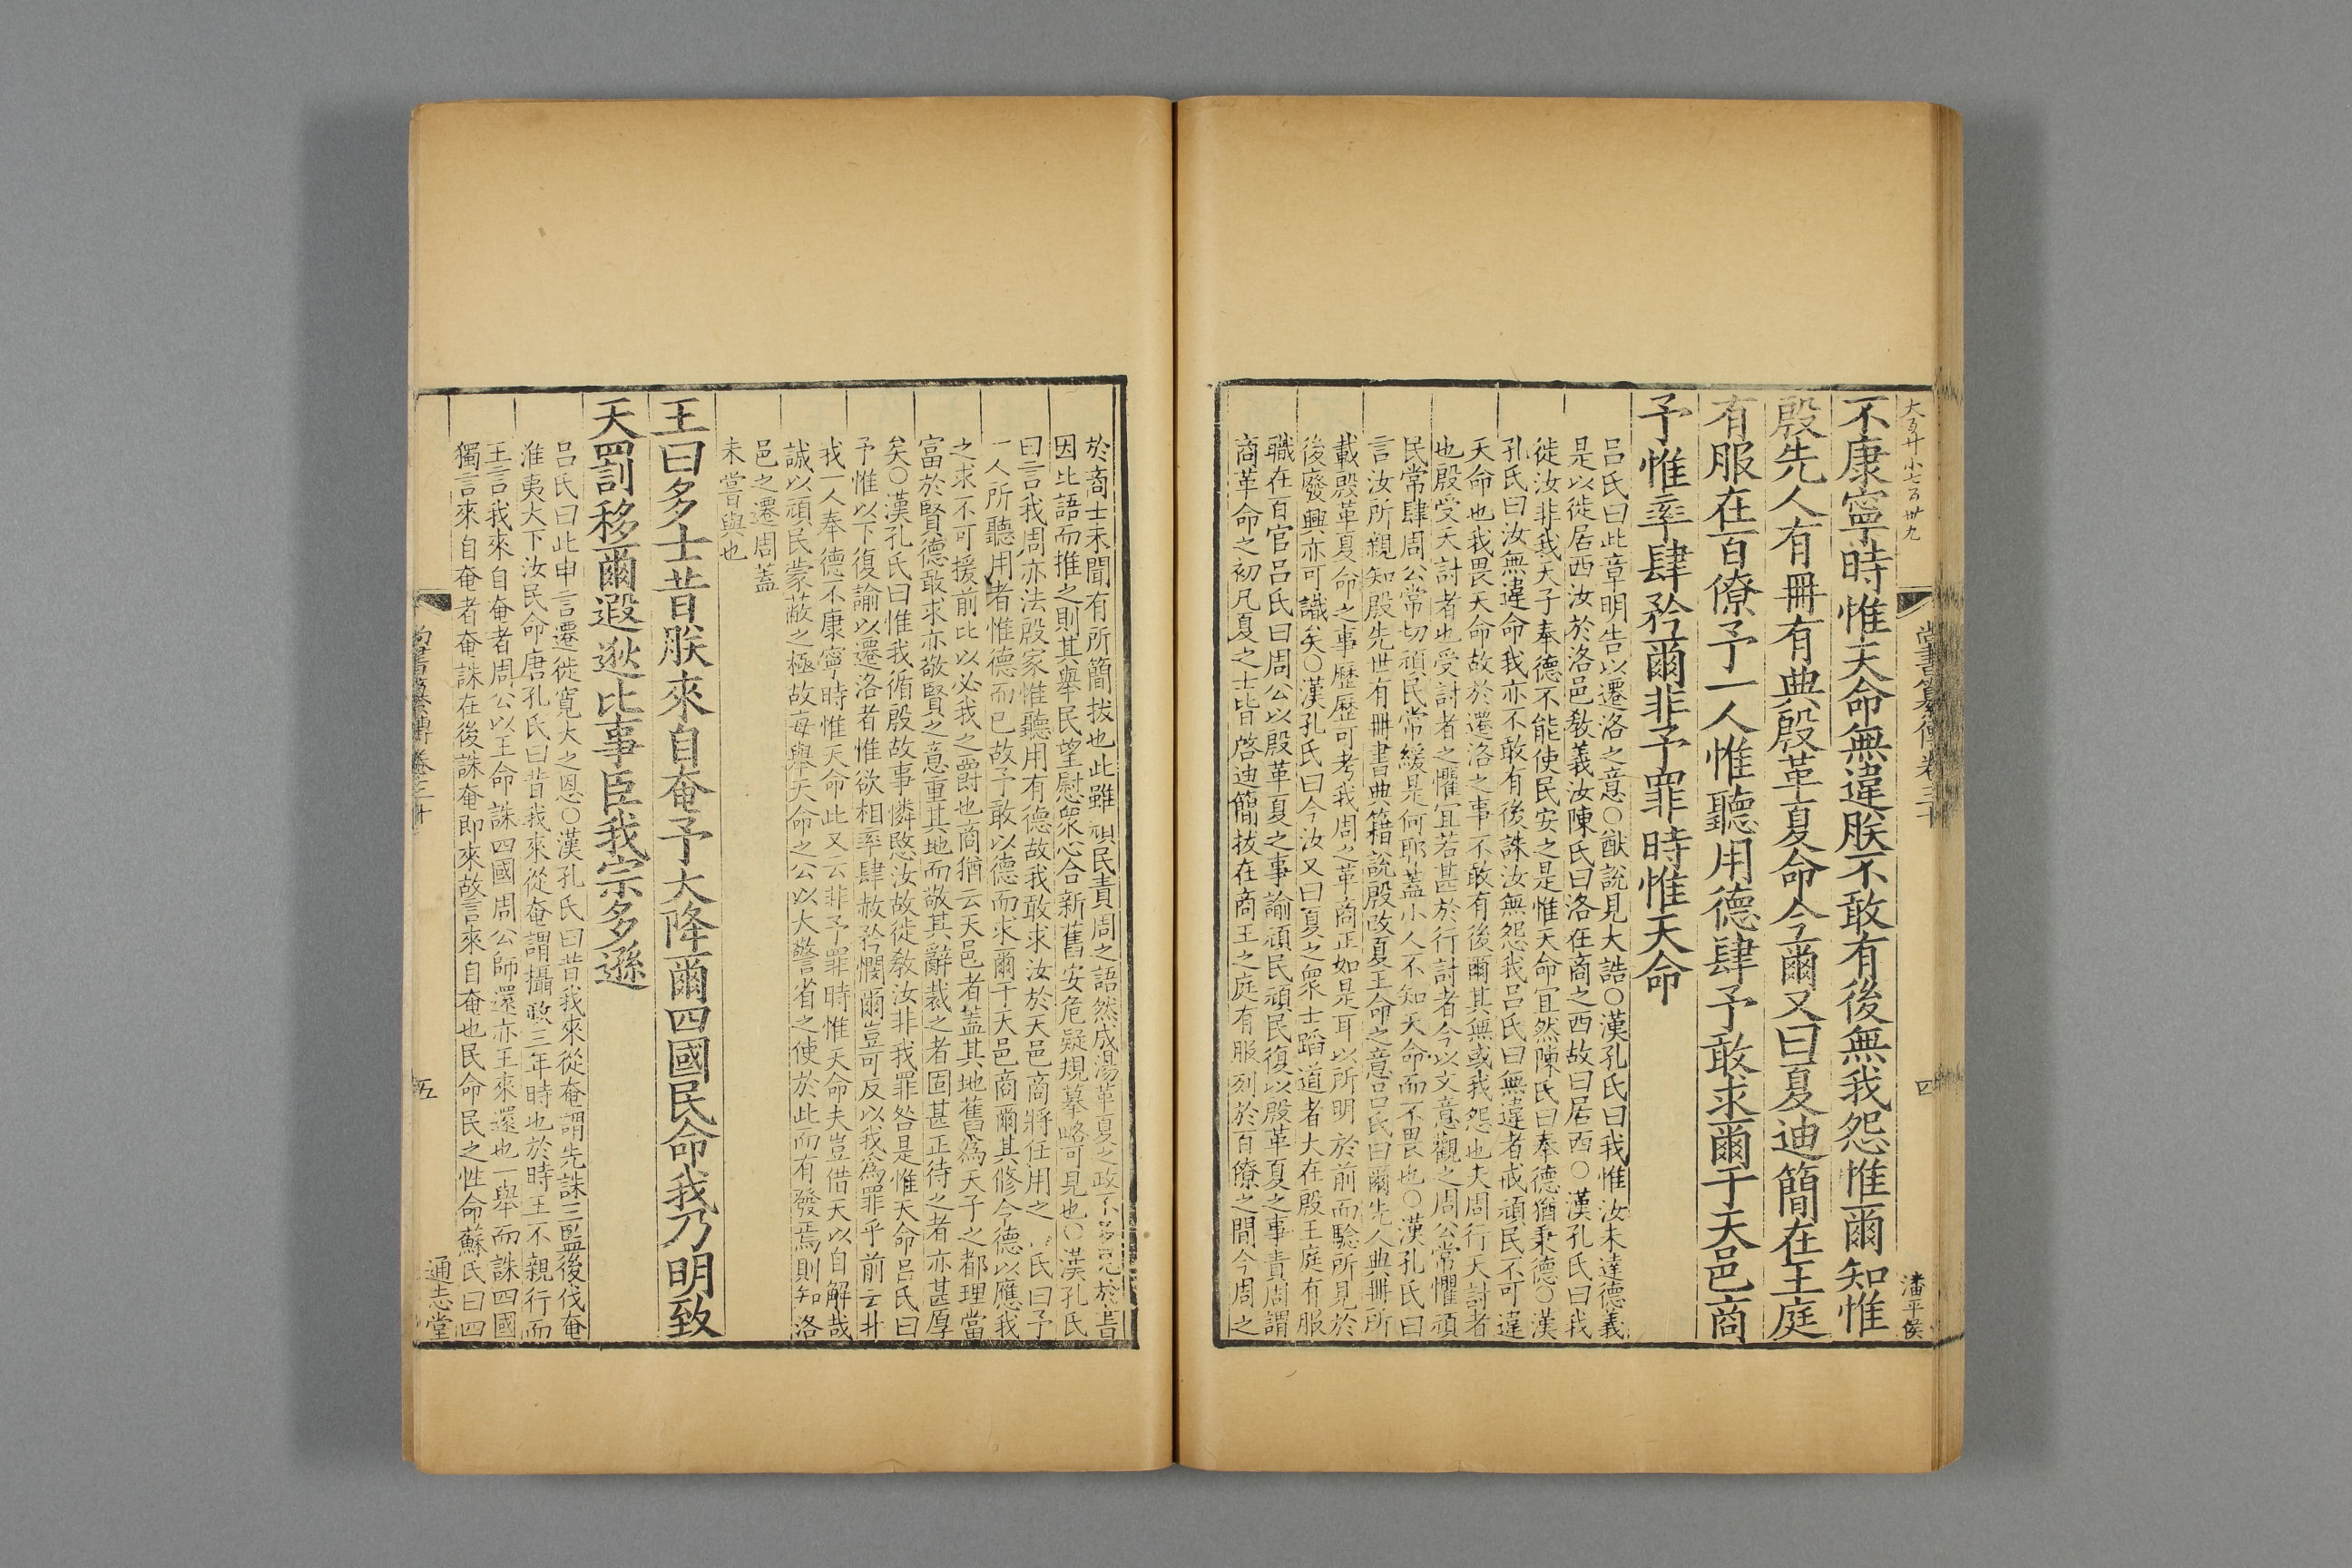 大百廿小七百卅九
尚書纂傳卷三十
四
潘平侯
不康寧時惟天命無違朕不敢有後無我怨惟爾知惟
殷先人有冊有典殷革夏命今爾又曰夏迪簡在王庭
有服在百僚予一人惟聽用德肆予敢求爾于天邑商
予惟率肆矜爾非予罪時惟天命
呂氏曰此章明告以遷洛之意○猷說見大誥○漢孔氏曰我惟汝未達德義
是以徙居西汝於洛邑教義汝陳氏曰洛在商之西故曰居西○漢孔氏曰我
徙汝非我天子奉德不能使民安之是惟天命宜然陳氏曰奉德猶秉德○漢
孔氏曰汝無違命我亦不敢有後誅汝無怨我呂氏曰無違者戒頑民不可違
天命也我畏天命故於遷洛之事不敢有後爾其無或我怨也夫周行天討者
也殷受天討者也受討者之懼宜若甚於行討者今以文意觀之周公常懼頑
民常肆周公常切頑民常緩是何耶蓋小人不知天命而不畏也○漢孔氏曰
言汝所親知殷先世有冊書典籍說殷改夏王命之意呂氏曰爾先人典冊所
載殷革夏命之事歷歷可考我周之革商正如是耳以所明於前而驗所見於
後廢興亦可識矣○漢孔氏曰今汝又曰夏之衆士蹈道者大在殷王庭有服
職在百官呂氏曰周公以殷革夏之事諭頑民頑民復以殷革夏之事責周謂
商革命之初凡夏之士皆啓迪簡拔在商王之庭有服列於百僚之間今周之
於商士未聞有所簡拔也此雖頑民責周之語然成湯革夏之政不多見於書
因此語而推之則其舉民望慰衆心合新舊安危疑規摹略可見也○漢孔氏
曰言我周亦法殷家惟聽用有德故我敢求汝於天邑商將任用之 氏曰予
一人所聽用者惟德而已故予敢以德而求爾于天邑商爾其修令德以應我
之求不可援前比以必我之爵也商猶云天邑者蓋其地舊爲天子之都理當
富於賢德敢求亦敬賢之意重其地而敬其辭裁之者固甚正待之者亦甚厚
矣○漢孔氏曰惟我循殷故事憐愍汝故徙教汝非我罪咎是惟天命呂氏曰
予惟以下復諭以遷洛者惟欲相率肆赦矜憫爾豈可反以我爲罪乎前云非
我一人奉德不康寧時惟天命此又云非予罪時惟天命夫豈借天以自解哉
誠以頑民蒙蔽之極故每舉天命之公以大警省之使於此而有發焉則知洛
邑之遷周蓋
未嘗與也
王曰多士昔朕來自奄予大降爾四國民命我乃明致
天罰移爾遐逖比事臣我宗多遜
呂氏曰此申言遷徙寬大之恩○漢孔氏曰昔我來從奄謂先誅三監後伐奄
淮夷大下汝民命唐孔氏曰昔我來從奄謂攝政三年時也於時王不親行而
王言我來自奄者周公以王命誅四國周公師還亦王來還也一舉而誅四國
獨言來自奄者奄誅在後誅奄即來故言來自奄也民命民之性命蘇氏曰四
尚書纂傳卷三十
五
通志堂